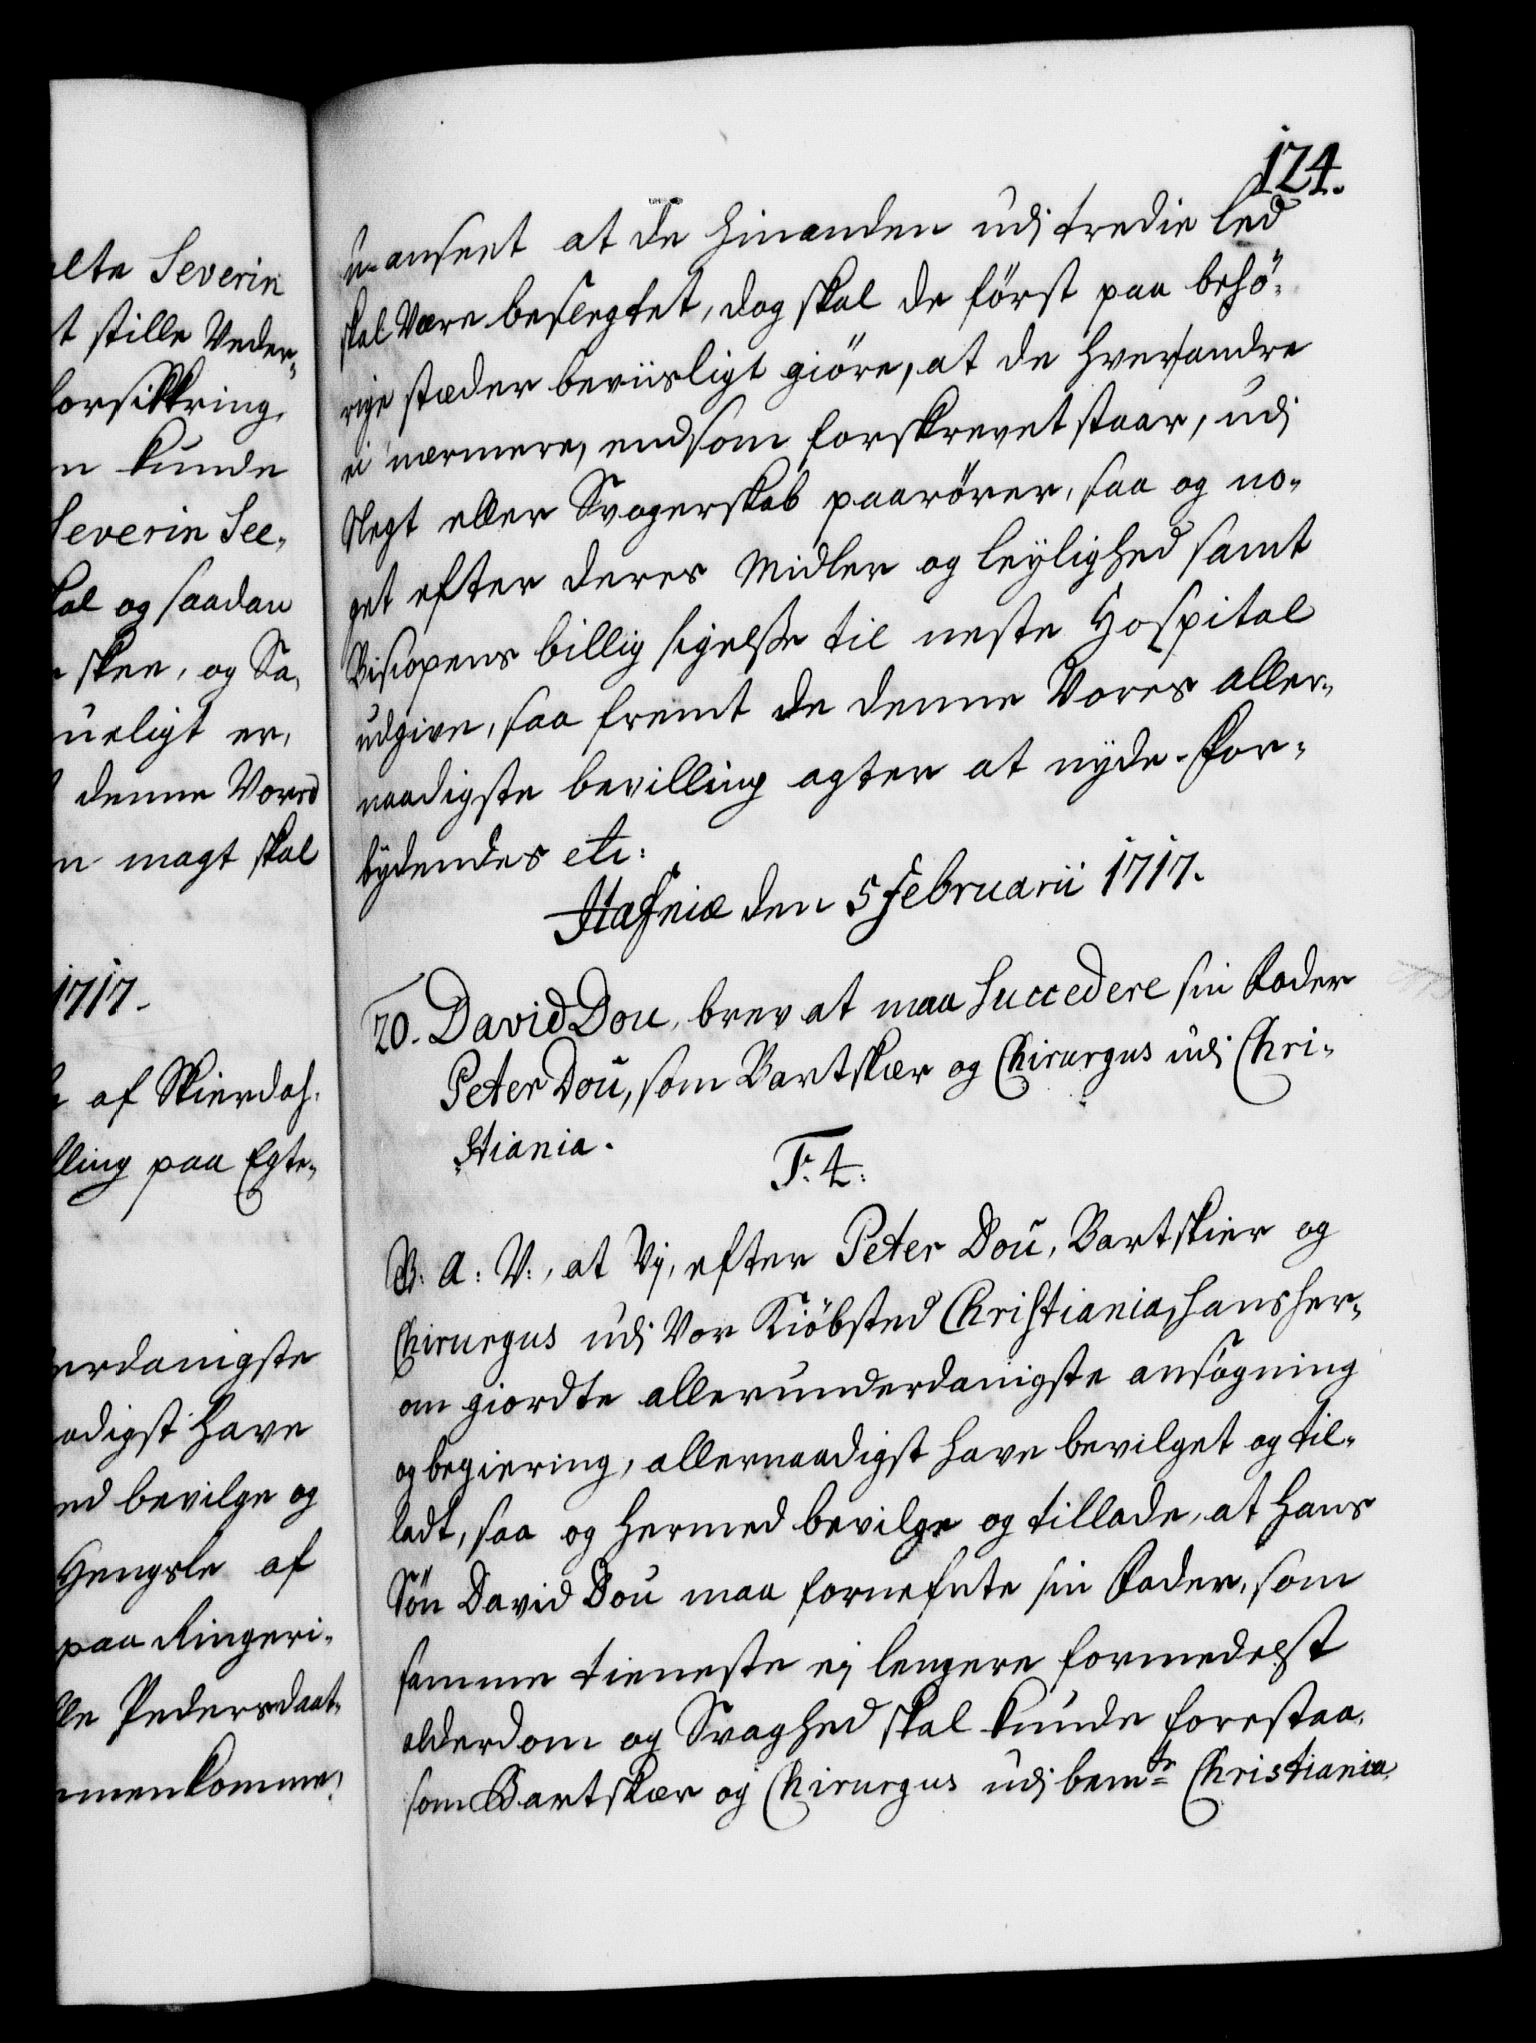 elte Severin
t stille Veder-
forsikkring,
n kunde
Severin See-
kal og saadan
skee, og Sa-
ueligt er,
denne Vores
n magt skal
1717.
af Skierdah-
lling paa Egte-
erdanigste
adigst have
ed bevilge og
Hengsle af
paa Ringeri-
lle Pedersdaat-
mmenkomme,
124.
u-anseet at de hinanden udj tredie led
skal være beslegtet, dog skal de först paa behö-
rige stæder beviisligt giöre, at de hverandre
ei nærmere, end som forskrevet staar, udj
Slegt eller Svogerskab paarörer, saa og no-
get efter deres Midler og leylighed samt
Biscopens billig sigelse til neste Hospital
udgive, saa fremt de denne Vores aller-
naadigste bevilling agter at nyde. For-
bydendes etc:
Hafniæ den 5 Februarii 1717.
20. David Dou, brev at maa Succedere sin Fader
Peter Dou, som Bartskær og Chirurgus udj Chri-
stiania.
F. 4.
G. A. V., at Vj, efter Peter Dou, Bartskier og
Chirurgus udj Vor Kiöbsted Christiania, hans her-
om giordte allerunderdanigste ansögning
og begiering, allernaadigst have bevilget og til-
ladt, saa og hermed bevilge og tillade, at hans
Sön David Dou maa fornefnte sin Fader, som
samme tieneste ej lengere formedelst
alderdom og Svaghed skal kunde forestaa,
som Bartskær og Chirurgus udj bemte Christiania